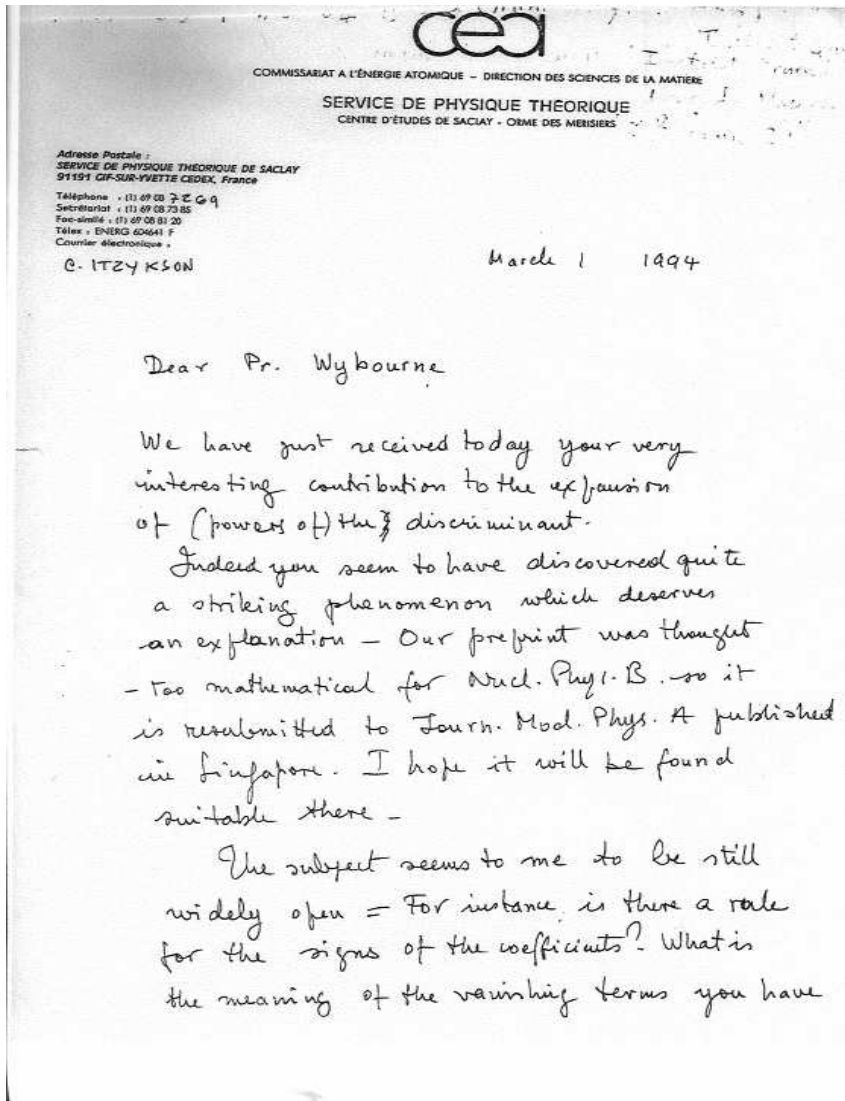 cea
COMMISSARIAT A L'ÉNERGIE ATOMIQUE – DIRECTION DES SCIENCES DE LA MATIÈRE
SERVICE DE PHYSIQUE THÉORIQUE
CENTRE D'ÉTUDES DE SACLAY - ORME DES MERISIERS
Adresse Postale :
SERVICE DE PHYSIQUE THÉORIQUE DE SACLAY
91191 GIF-SUR-YVETTE CEDEX, France
Téléphone : (1) 69 08 7269
Secrétariat : (1) 69 08 73 85
Fac-similé : (1) 69 08 81 20
Télex : ENERG 604641 F
Courrier électronique :
C. ITZYKSON
March 1 1994
Dear Pr. Wybourne
We have just received today your very
interesting contribution to the expansion
of (powers of) the discriminant.
Indeed you seem to have discovered quite
a striking phenomenon which deserves
an explanation – Our preprint was thought
– too mathematical for Nucl. Phys. B. so it
is resubmitted to Journ. Mod. Phys. A published
in Singapore. I hope it will be found
suitable there –
The subject seems to me to be still
widely open = For instance, is there a rule
for the signs of the coefficients? What is
the meaning of the vanishing terms you have